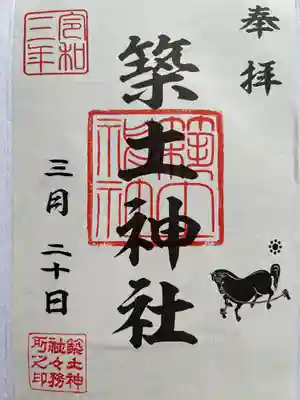 奉拝
築土神社
築土
神社
令和
三年
三月二十日
築土神
社々務
所之印